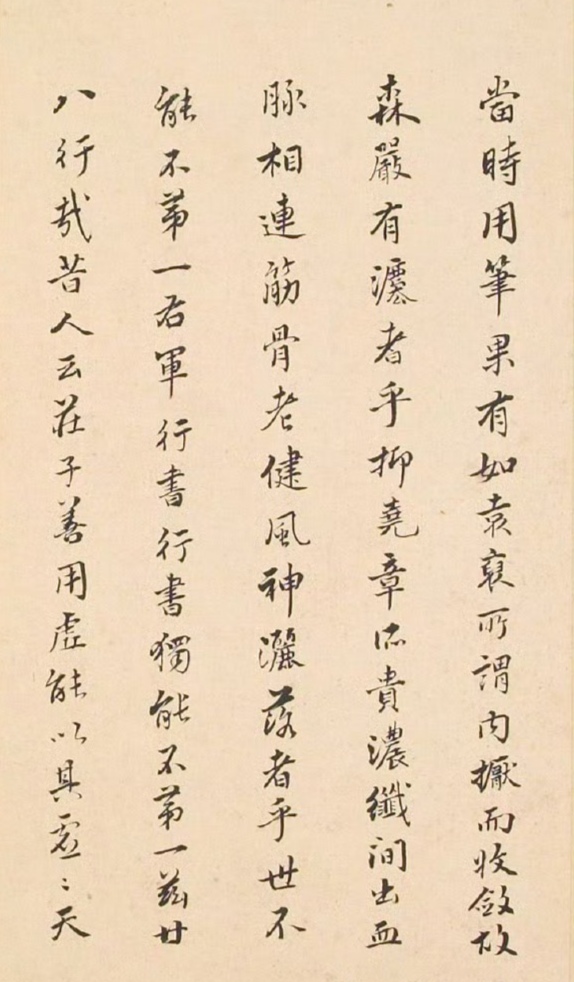 當時用筆果有如袁裒所謂内擫而收斂故
森嚴有灋者乎抑堯章所貴濃纖間出血
脉相連筋骨老健風神灑落者乎世不
能不第一右軍行書行書獨能不第一茲廿
八行哉昔人云莊子善用虛能以其虛〻天